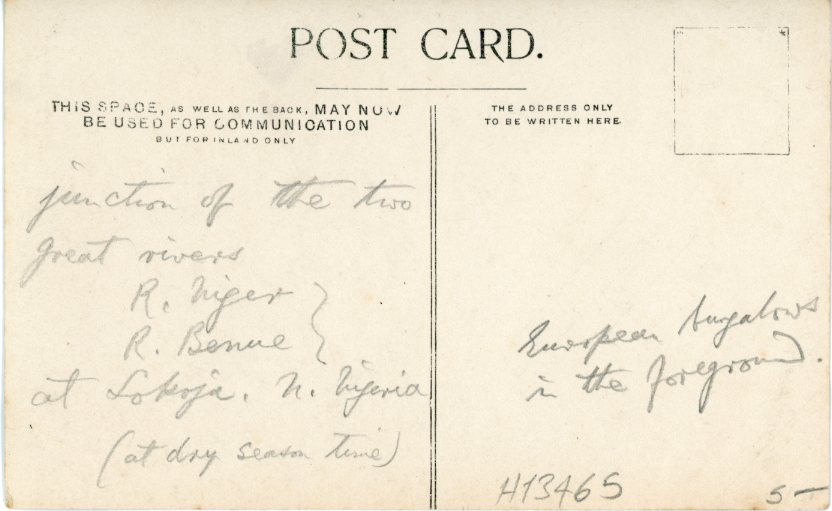 POST CARD.
THIS SPACE, AS WELL AS THE BACK, MAY NOW
BE USED FOR COMMUNICATION
BUT FOR INLAND ONLY
THE ADDRESS ONLY
TO BE WRITTEN HERE.
junction of the two
great rivers
R. Niger }
R. Benue }
at Lokoja. N. Nigeria
(at dry season time)
European bungalows
in the foreground.
H13465
5 —